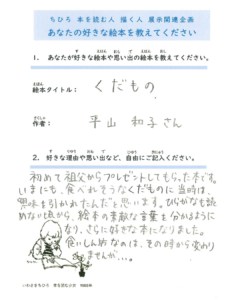 ちひろ 本を読む人 描く人 展示関連企画
あなたの好きな絵本を教えてください
1. あなたが好きな絵本や思い出の絵本を教えてください。
絵本タイトル： くだもの
作者： 平山 和子さん
2. 好きな理由や思い出など、自由にご記入ください。
初めて祖父からプレゼントしてもらった本です。
いまにも、食べれそうなくだものに当時は、
興味を引かれたんだと思います。ひらがなも読
めない頃から、絵本の素敵な言葉を分かるように
なり、さらに好きな本になりました。
食いしん坊なのは、その時から変わり
ませんが…。
いわさきちひろ 本を読む少女